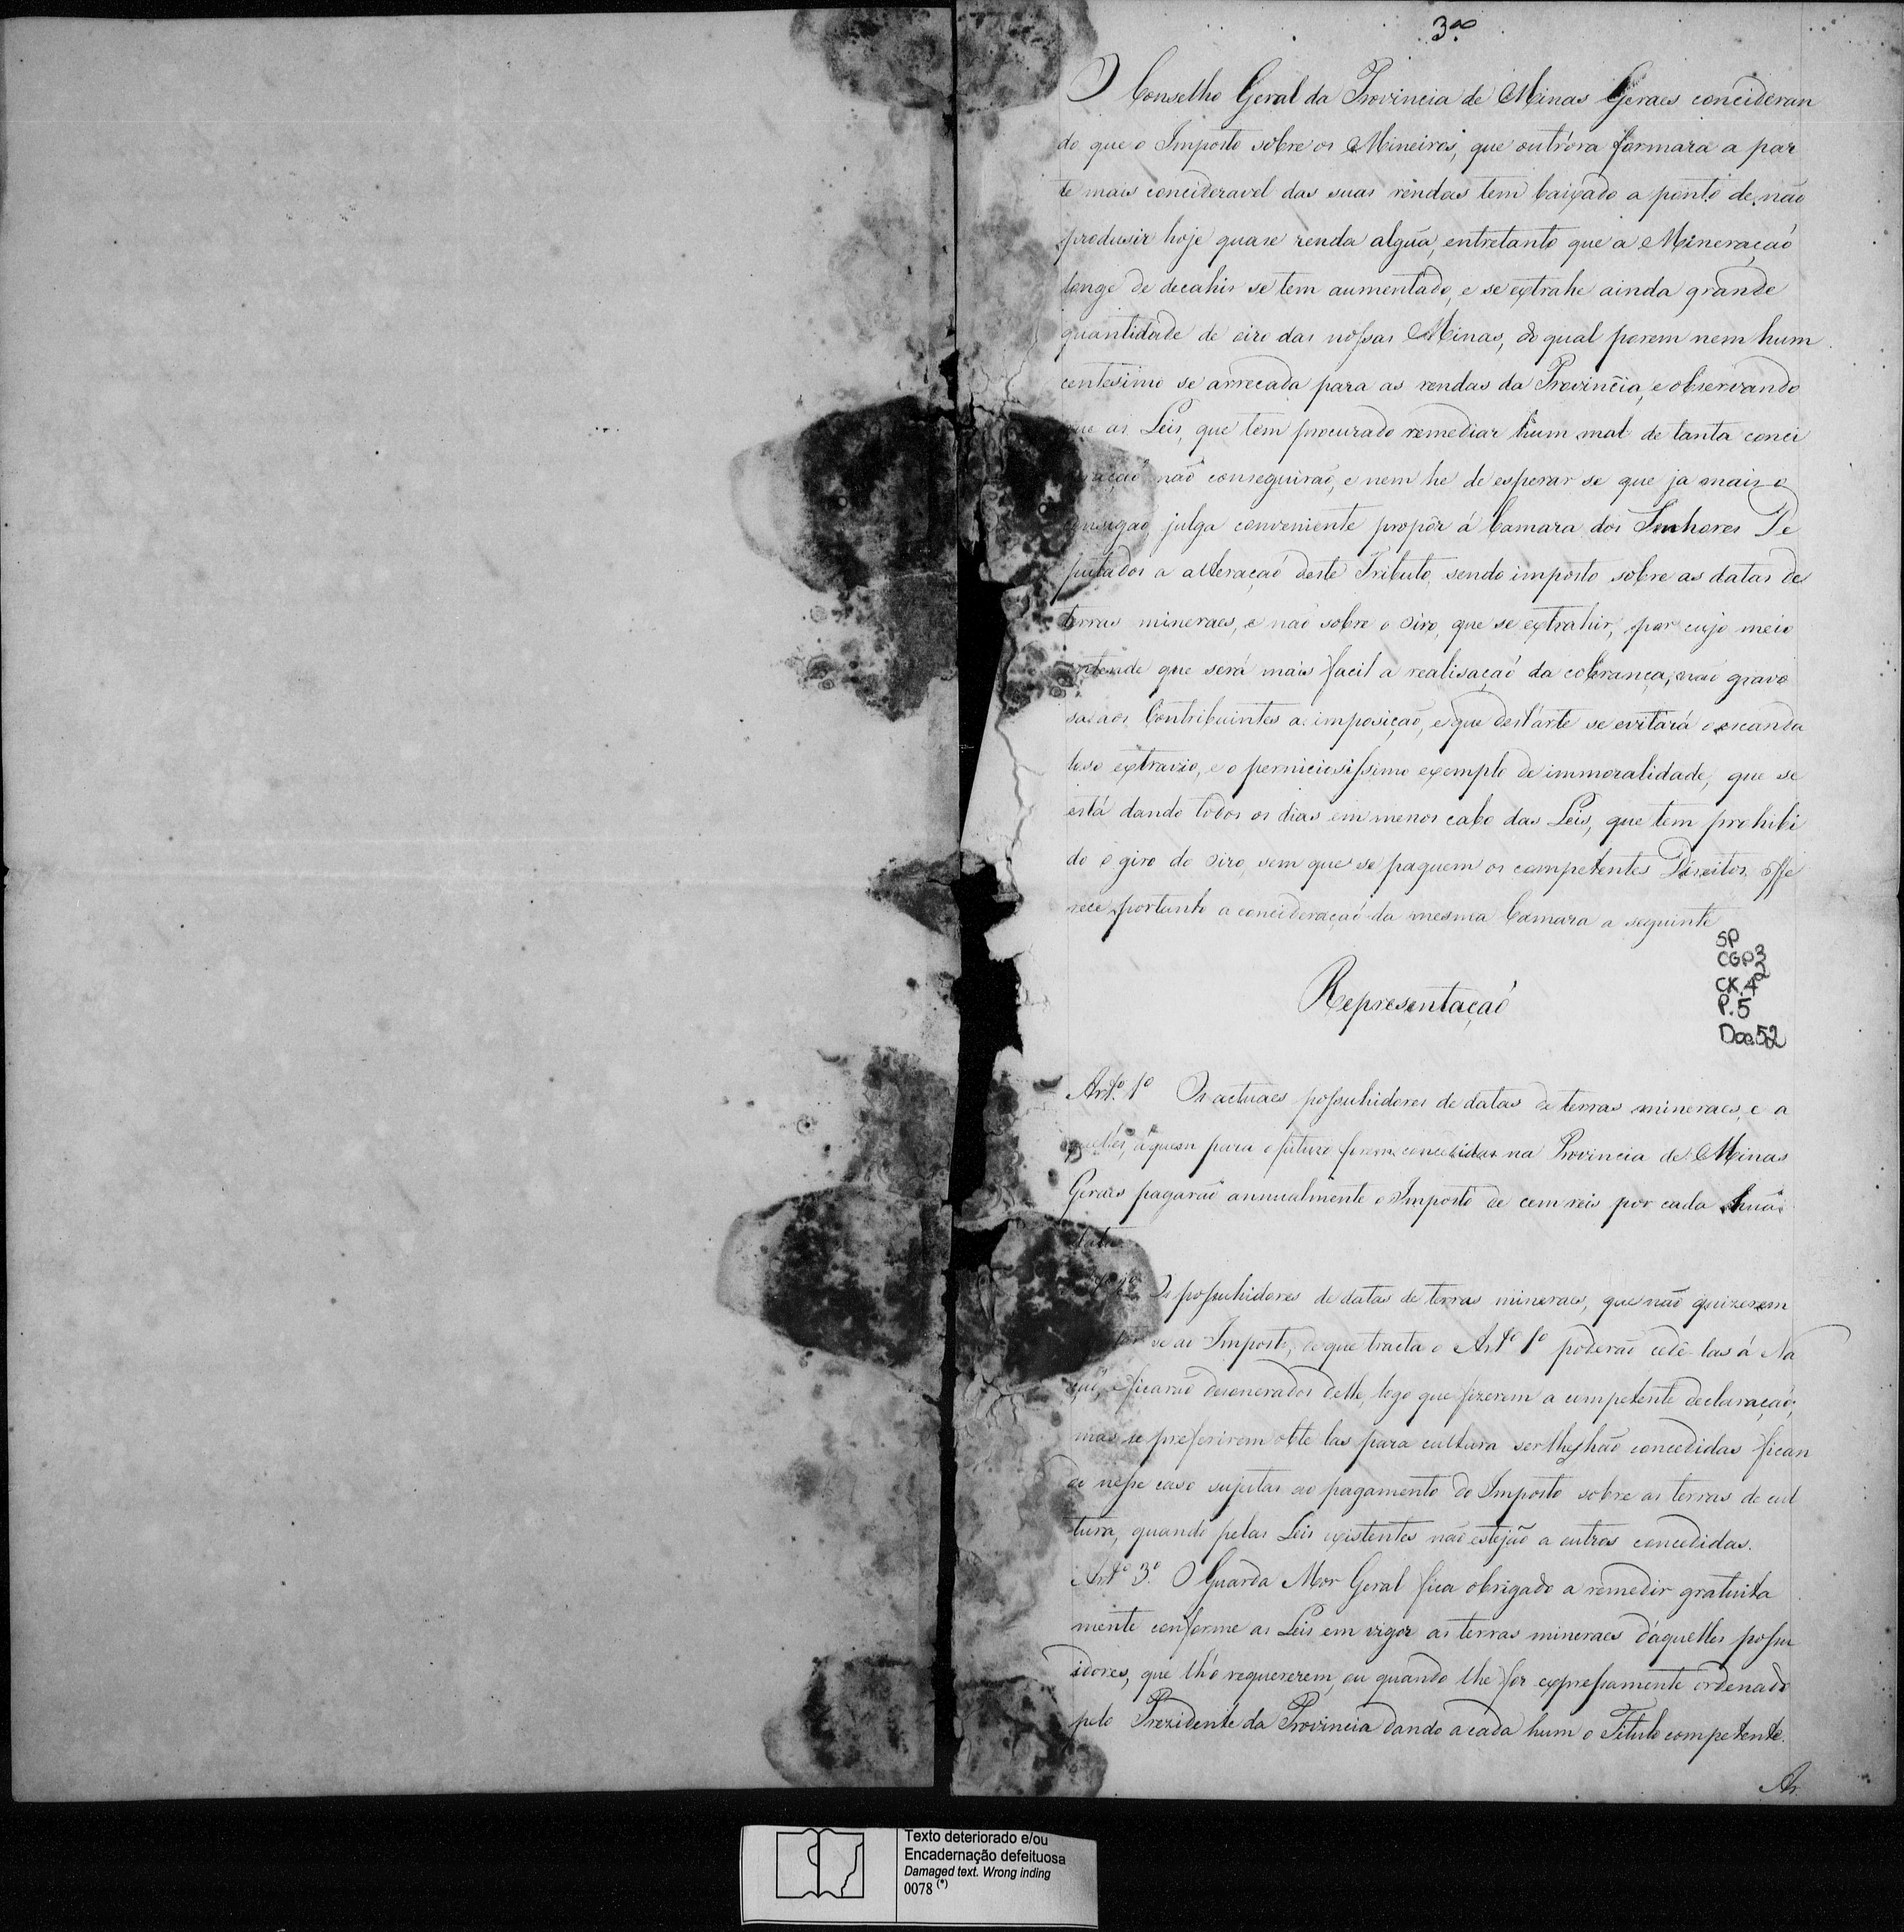 3.ª
O Conselho Geral da Provincia de Minas Geraes concideran
do que o Imposto sobre os Mineiros, que outr'ora formara a par
te mais concideravel das suas rendas tem baixado a ponto de não
produsir hoje quase renda algũa, entretanto que a Mineração
longe de decahir se tem aumentado, e se extrahe ainda grande
quantidade de oiro das nossas Minas, do qual porem nem hum
centesimo se arrecada para as rendas da Provincia, e observando
que as Leis, que tem procurado remediar hum mal de tanta conci
ração não conseguirão, e nem he de esperar se que ja mais o
consigão, julga conveniente propôr á Camara dos Senhores De
putados a alteração deste Tributo, sendo imposto sobre as datas de
terras mineraes, e não sobre o oiro, que se extrahir, por cujo meio
entende que será mais facil a realisação da cobrança, não gravo
sa aos Contribuintes a imposição, e que dest'arte se evitará o escanda
loso extravio, e o perniciosissimo exemplo de immoralidade, que se
está dando todos os dias em menos cabo das Leis, que tem prohibi
do o giro do oiro, sem que se paguem os competentes Direitos. Offe
rece portanto a concideração da mesma Camara a seguinte
SP
CGP3
CX.42
P.5
Doc.52
Representação
Art.º 1º Os actuaes possuhidores de datas de terras mineraes, e a
quelles, á quem para o futuro forem concedidas na Provincia de Minas
Geraes pagarão annualmente o Imposto de cem reis por cada hũa
data.
Os possuhidores de datas de terras mineraes, que não quizerem
se ao Imposto, de que tracta o Artº 1º poderão cedê-las á Na
ção, e ficarão desonerados delle, logo que fizerem a competente declaração;
mas se preferirem obte las para cultura ser lhes hão concedidas fican
do nesse caso sujeitas ao pagamento do Imposto sobre as terras de cul
tura, quando pelas Leis existentes não estejão a outros concedidas.
Artº 3º. O Guarda Mor Geral fica obrigado a remedir gratuita
mente conforme as Leis em vigor as terras mineraes d'aquelles possu
idores, que lh'o requererem, ou quando lhe for expressamente ordenado
pelo Prezidente da Provincia dando a cada hum o Titulo competente.
Ar
Texto deteriorado e/ou
Encadernação defeituosa
Damaged text. Wrong inding
0078 (*)